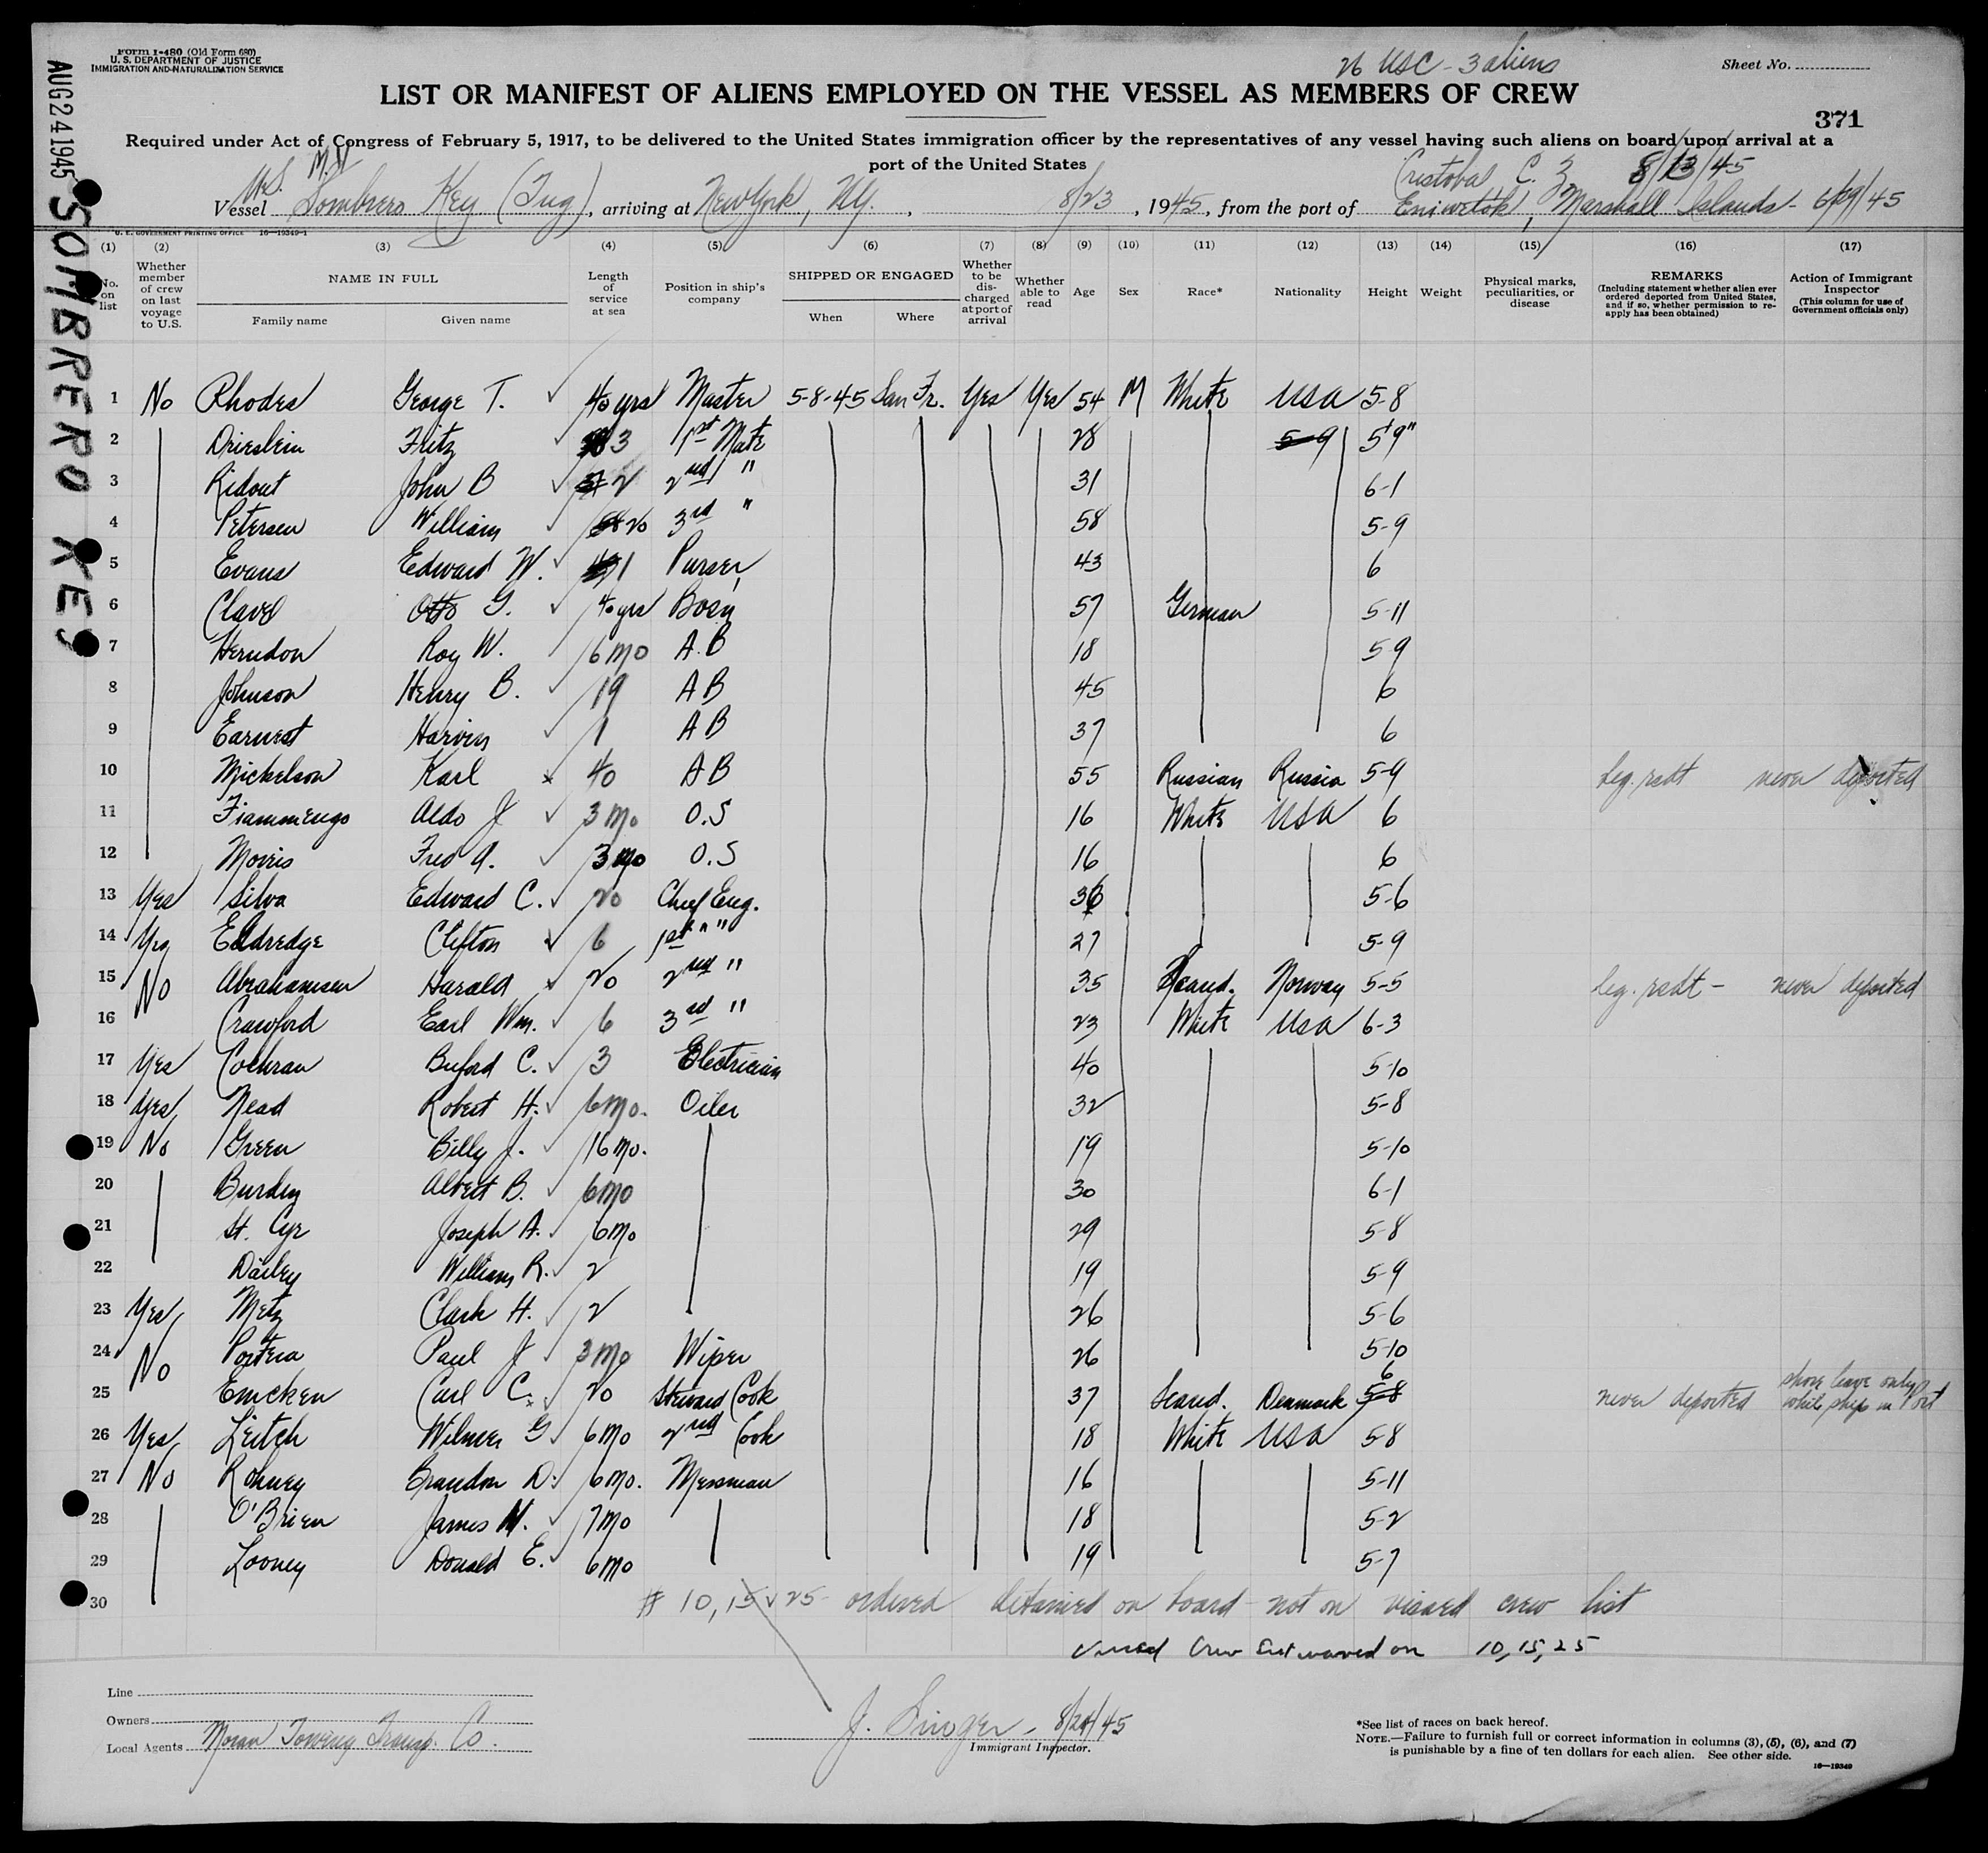 Form I-480 (Old Form 680)
U. S. DEPARTMENT OF JUSTICE
IMMIGRATION AND NATURALIZATION SERVICE
26 USC - 3 aliens
Sheet No.
LIST OR MANIFEST OF ALIENS EMPLOYED ON THE VESSEL AS MEMBERS OF CREW
371
Required under Act of Congress of February 5, 1917, to be delivered to the United States immigration officer by the representatives of any vessel having such aliens on board upon arrival at a
port of the United States
AUG 24 1945 SOMBRERO KEY
M.V. Cristobal C. Z 8/13/45
Vessel U.S. Sombrero Key (Tug), arriving at New York, N.Y., 8/23, 1945, from the port of Eniwetok, Marshall Islands - 6/29/45
U. S. GOVERNMENT PRINTING OFFICE 16-19349-1
(1) (2) (3) (4) (5) (6) (7) (8) (9) (10) (11) (12) (13) (14) (15) (16) (17)
No. on list
Whether member of crew on last voyage to U.S.
NAME IN FULL
Family name Given name
Length of service at sea
Position in ship's company
SHIPPED OR ENGAGED
When Where
Whether to be discharged at port of arrival
Whether able to read
Age
Sex
Race*
Nationality
Height
Weight
Physical marks, peculiarities, or disease
REMARKS
(Including statement whether alien ever ordered deported from United States, and if so, whether permission to reapply has been obtained)
Action of Immigrant Inspector
(This column for use of Government officials only)
1 No Rhodes George T. 40 yrs Master 5-8-45 San Fr. Yes Yes 54 M White USA 5-8
2 Fritz 3 1st Mate 28 5-9 5'9"
3 Ridout John B 2 2nd " 31 6-1
4 Petersen William 20 3rd " 58 5-9
5 Evans Edward W. 1 Purser 43 6
6 Clavel Otto G. 40 yrs Bosn 57 German 5-11
7 Herndon Roy W. 6 mo A.B 18 5-9
8 Johnson Henry B. 19 AB 45 6
9 Earnest Harvin 1 AB 37 6
10 Mickelson Karl 40 AB 55 Russian Russia 5-9 leg. resdt never deported
11 Fiammengo Aldo J 3 mo O.S 16 White USA 6
12 Morris Fred A. 3 mo O.S 16 6
13 Yes Silva Edward C. 20 Chief Eng. 36 5-6
14 Yes Eldredge Clifton 6 1st " " 27 5-9
15 No Abrahamsen Harald 20 2nd " 35 Scand. Norway 5-5 leg. resdt - never deported
16 Crawford Earl Wm. 6 3rd " 23 White USA 6-3
17 Yes Cochran Buford C. 3 Electrician 40 5-10
18 Yes Nead Robert H. 6 mo. Oiler 32 5-8
19 No Green Billy J. 16 mo. 19 5-10
20 Burdey Albert B. 6 mo 30 6-1
21 St. Cyr Joseph A. 6 mo 29 5-8
22 Dailey William R. 2 19 5-9
23 Yes Metz Clark H. 2 26 5-6
24 No Portera Paul J 3 mo Wiper 26 5-10
25 Emcken Carl C. 20 Steward Cook 37 Scand. Denmark 5-8 6 never deported shore leave only while ship in Port
26 Yes Leitch Wilmer G 6 mo 2nd Cook 18 White USA 5-8
27 No Brandon D. 6 mo. Messman 16 5-11
28 O'Brien James M. 7 mo 18 5-2
29 Looney Donald E. 6 mo 19 5-7
30
# 10, 15 & 25 ordered detained on board - not on visaed crew list
Visaed Crew List waived on 10, 15, 25
Line
Owners
Local Agents Moran Towing Transp. Co.
J. Singer - 8/24/45
Immigrant Inspector.
*See list of races on back hereof.
NOTE.—Failure to furnish full or correct information in columns (3), (5), (6), and (7)
is punishable by a fine of ten dollars for each alien. See other side.
16-19349